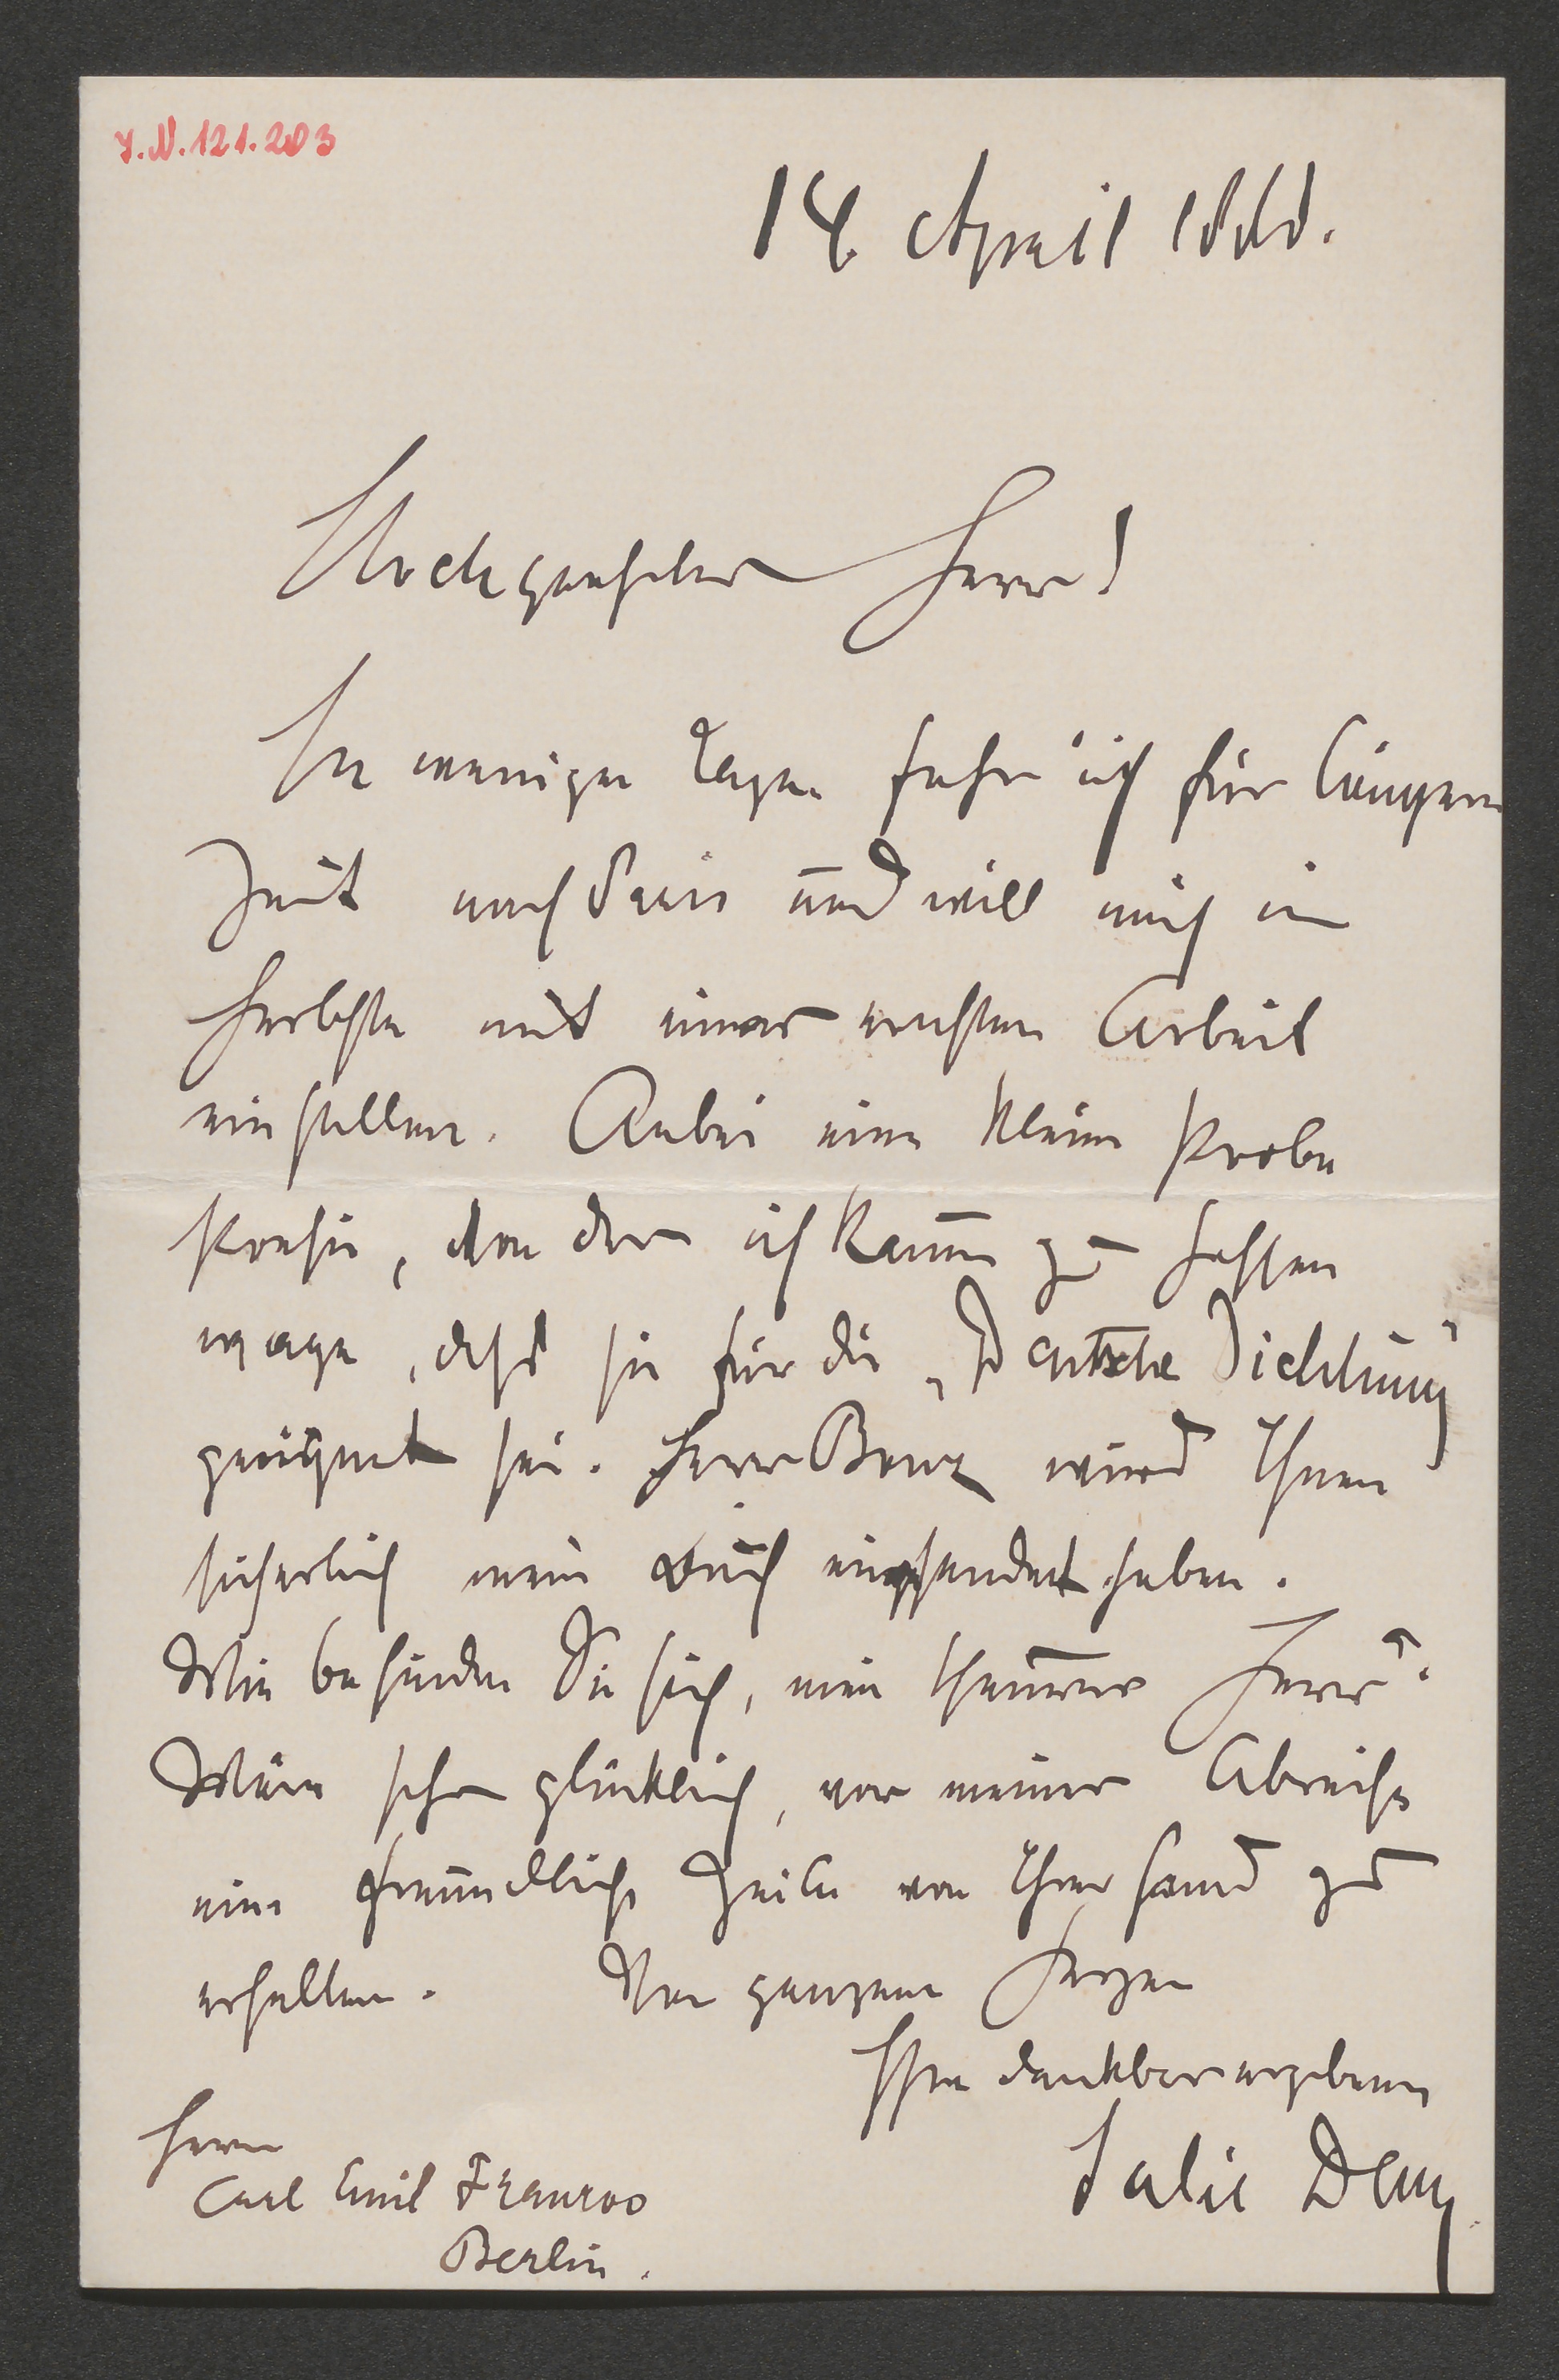 J.N. 121.203
14. April 1888.
Hochgeehrter Herr!
In wenigen Tagen fahre ich für längere
Zeit nach Paris und will mich im
Herbste mit einer ernsten Arbeit
einstellen. Anbei eine kleine Probe
Poesie, von der ich kaum zu hoffen
wage, daß sie für die „Deutsche Dichtung"
geeignet sei. Herr Bonz wird Ihnen
sicherlich mein Buch eingesendet haben.
Wie befinden Sie sich, mein theurer Herr?
Wäre schon glücklich, vor meiner Abreise
eine freundliche Zeile von Ihrer Hand zu
erhalten. Von ganzem Herzen
Ihr dankbar ergebener
Herrn
Carl Emil Franzos
Berlin.